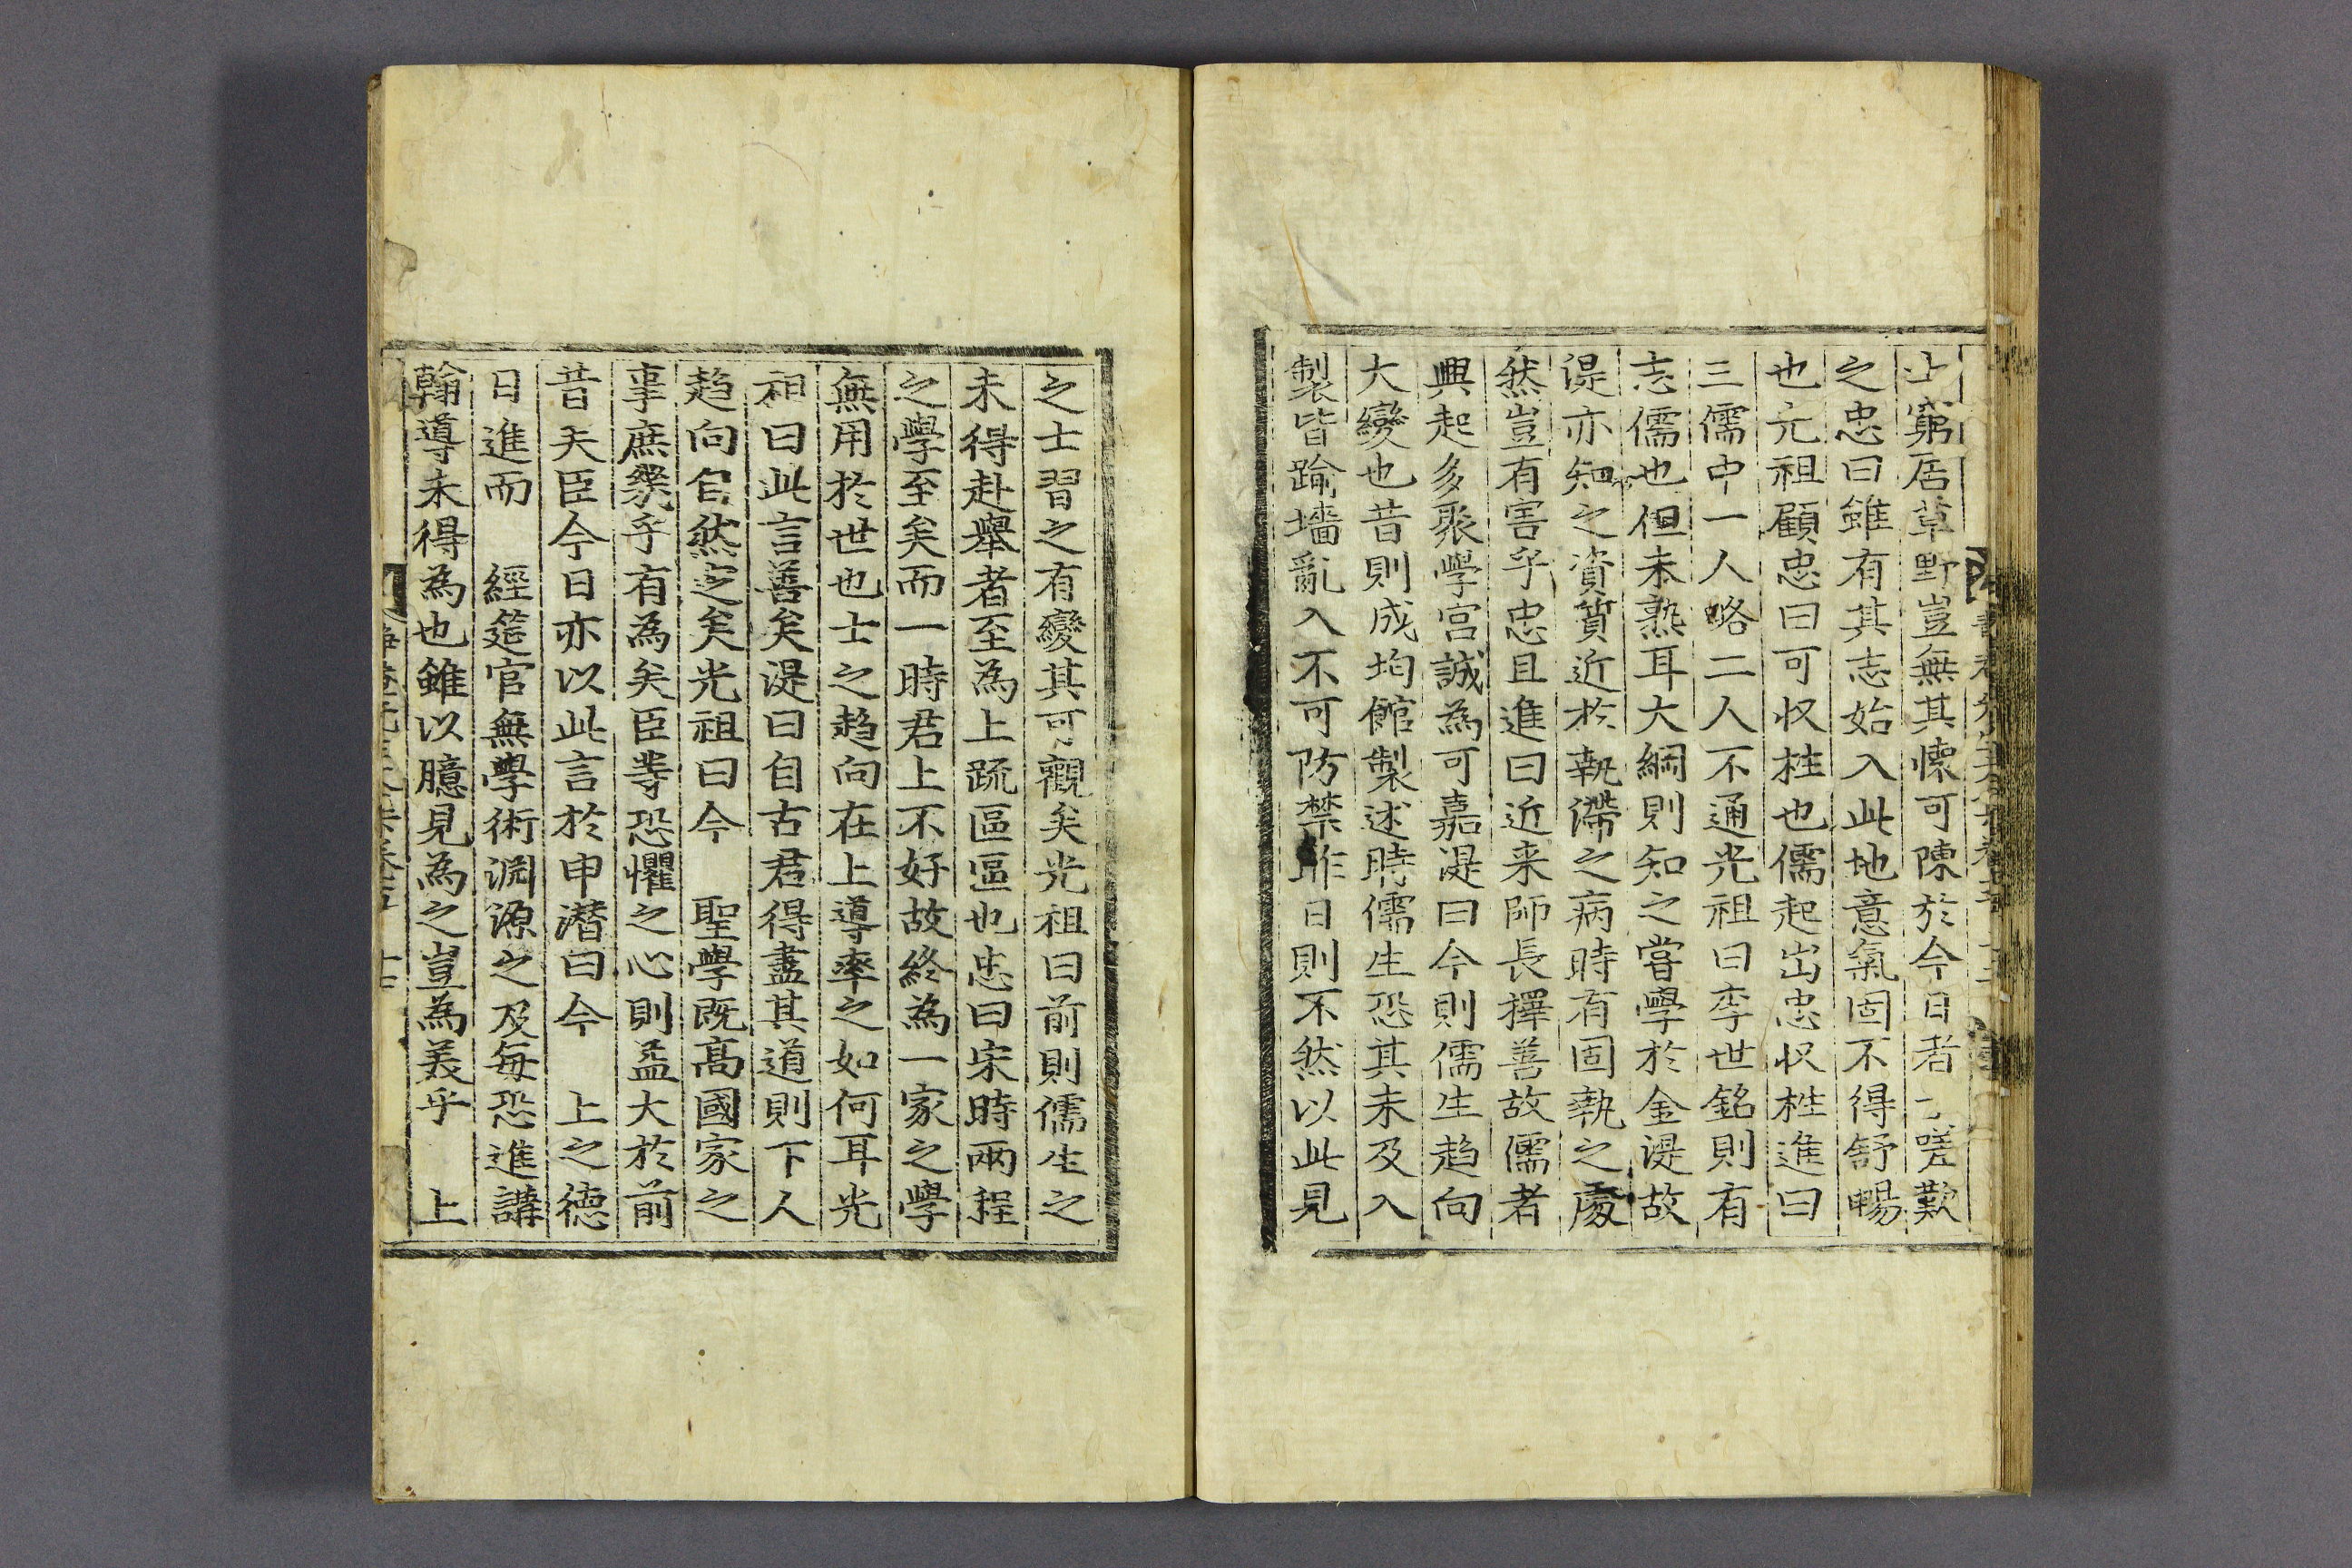 止窮居草野豈無其懐可陳於今日者嗟歎
之忠曰雖有其志始入此地意氣固不得舒暢
也元祖顧忠曰可収柱也儒起出忠収柱進曰
三儒中一人略二人不通光祖曰李世銘則有
志儒也但未熟耳大綱則知之嘗學於金湜故
湜亦知之資質近於執滯之病時有固執之處
然豈有害乎忠且進曰近来師長擇善故儒者
興起多聚學宮誠為可嘉湜曰今則儒生趍向
大變也昔則成均館製述時儒生恐其未及入
製皆踰墻亂入不可防禁昨日則不然以此見
之士習之有變其可觀矣光祖曰前則儒生之
未得赴舉者至為上䟽區區也忠曰宋時兩程
之學至矣而一時君上不好故終為一家之學
無用於世也士之趍向在上導率之如何耳光
祖曰此言善矣湜曰自古君得盡其道則下人
趍向自然定矣光祖曰今 聖學既高國家之
事庶幾乎有為矣臣等恐懼之心則益大於前
昔矣臣今日亦以此言於申潛曰今 上之德
日進而 經筵官無學術淵源之及每恐進講
翰導未得為也雖以臆見為之豈為美乎 上